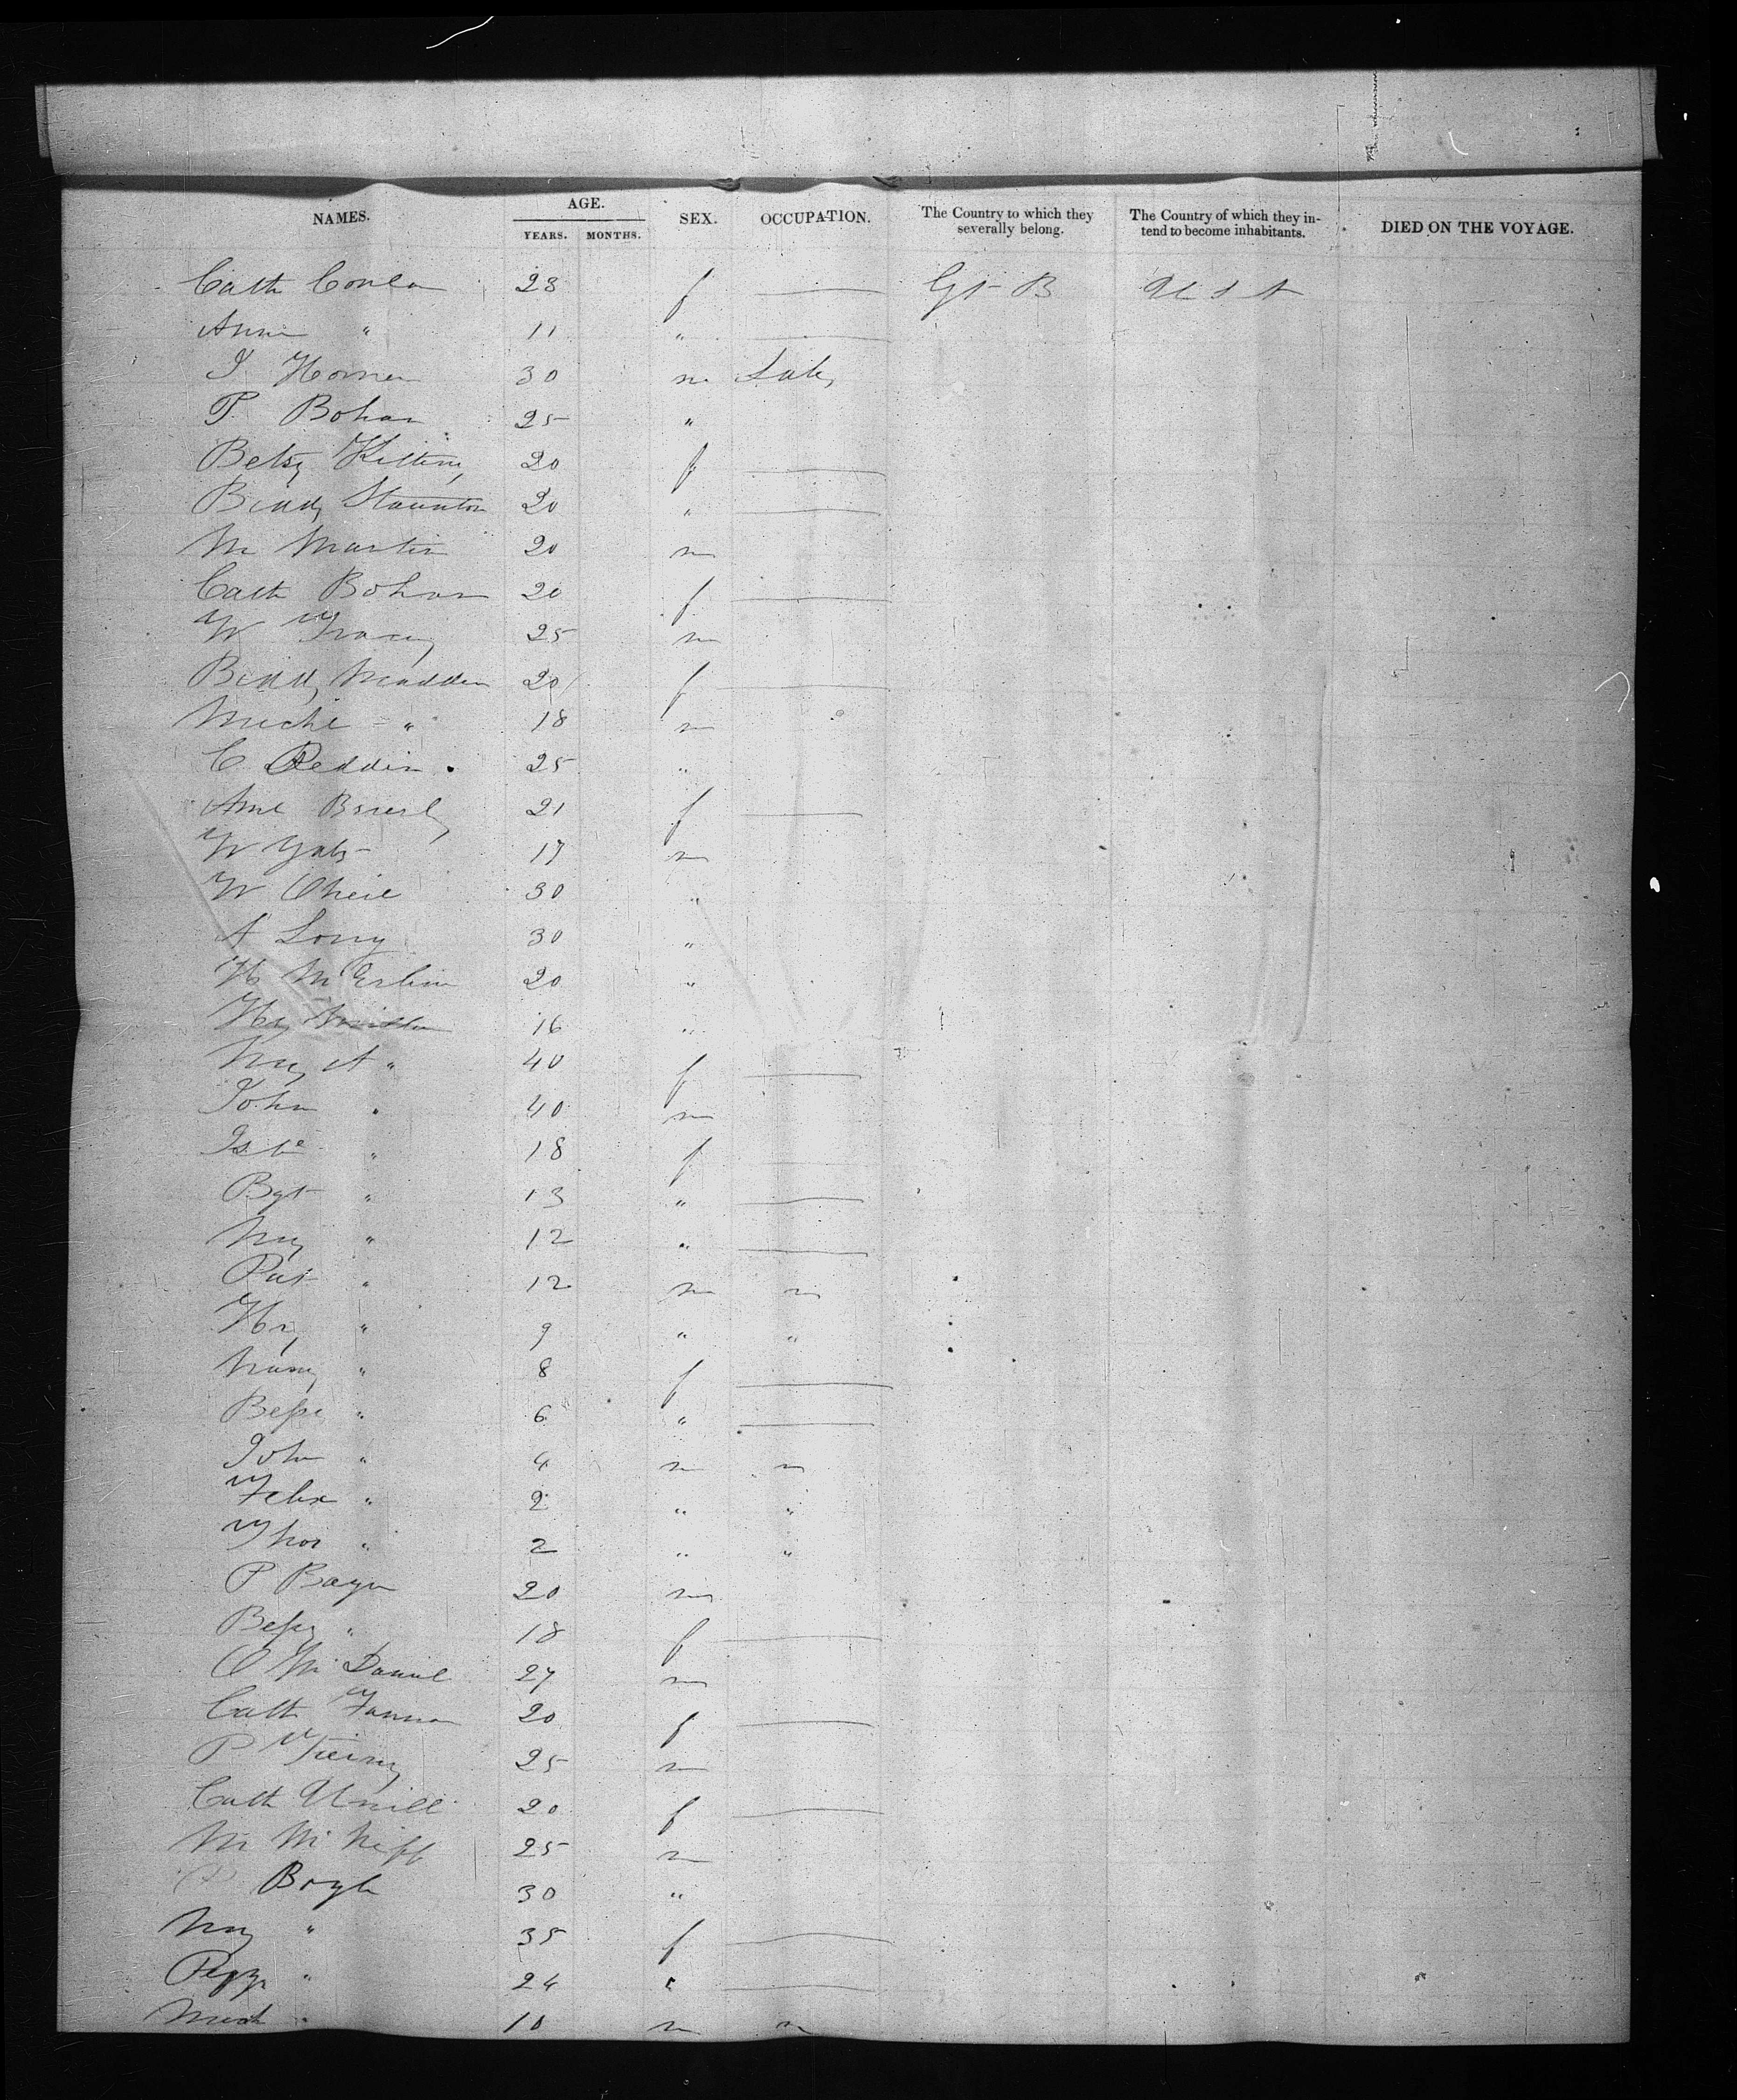 NAMES. AGE. SEX. OCCUPATION. The Country to which they severally belong. The Country of which they in- tend to become inhabitants. DIED ON THE VOYAGE.
YEARS. MONTHS.
Cath Conlan 28 f — Gt B U S A
Anne " 11 " —
J Horner 30 m Lab
P. Bohan 25 "
Betsy 20 f —
Biddy Staunton 20 " —
M Martin 20 m
Cath Bohan 20 f —
W Tracey 25 m
Biddy Madden 20 f —
Michl " 18 m
C Reddin 25 "
Ame 21 f —
W Yats 17 m
W ONeil 30 "
A Lorry 30 "
H 20 "
Hy 16 "
My A " 40 f —
John " 40 m
Isbe " 18 f —
Bgt " 13 " —
My " 12 " —
Pat " 12 m
Hy " 9 " "
Nancy " 8 f —
Bessy " 6 " —
John " 4 m
Felix " 2 " "
Thos " 2 " "
P 20 m
Bessy " 18 f —
O McDaniel 27 m
Cath 20 f —
P 25 m
Cath 20 f —
M McNiff 25 m
Boyle 30 "
My " 35 f —
Peggy " 24 " —
Mich " 10 m